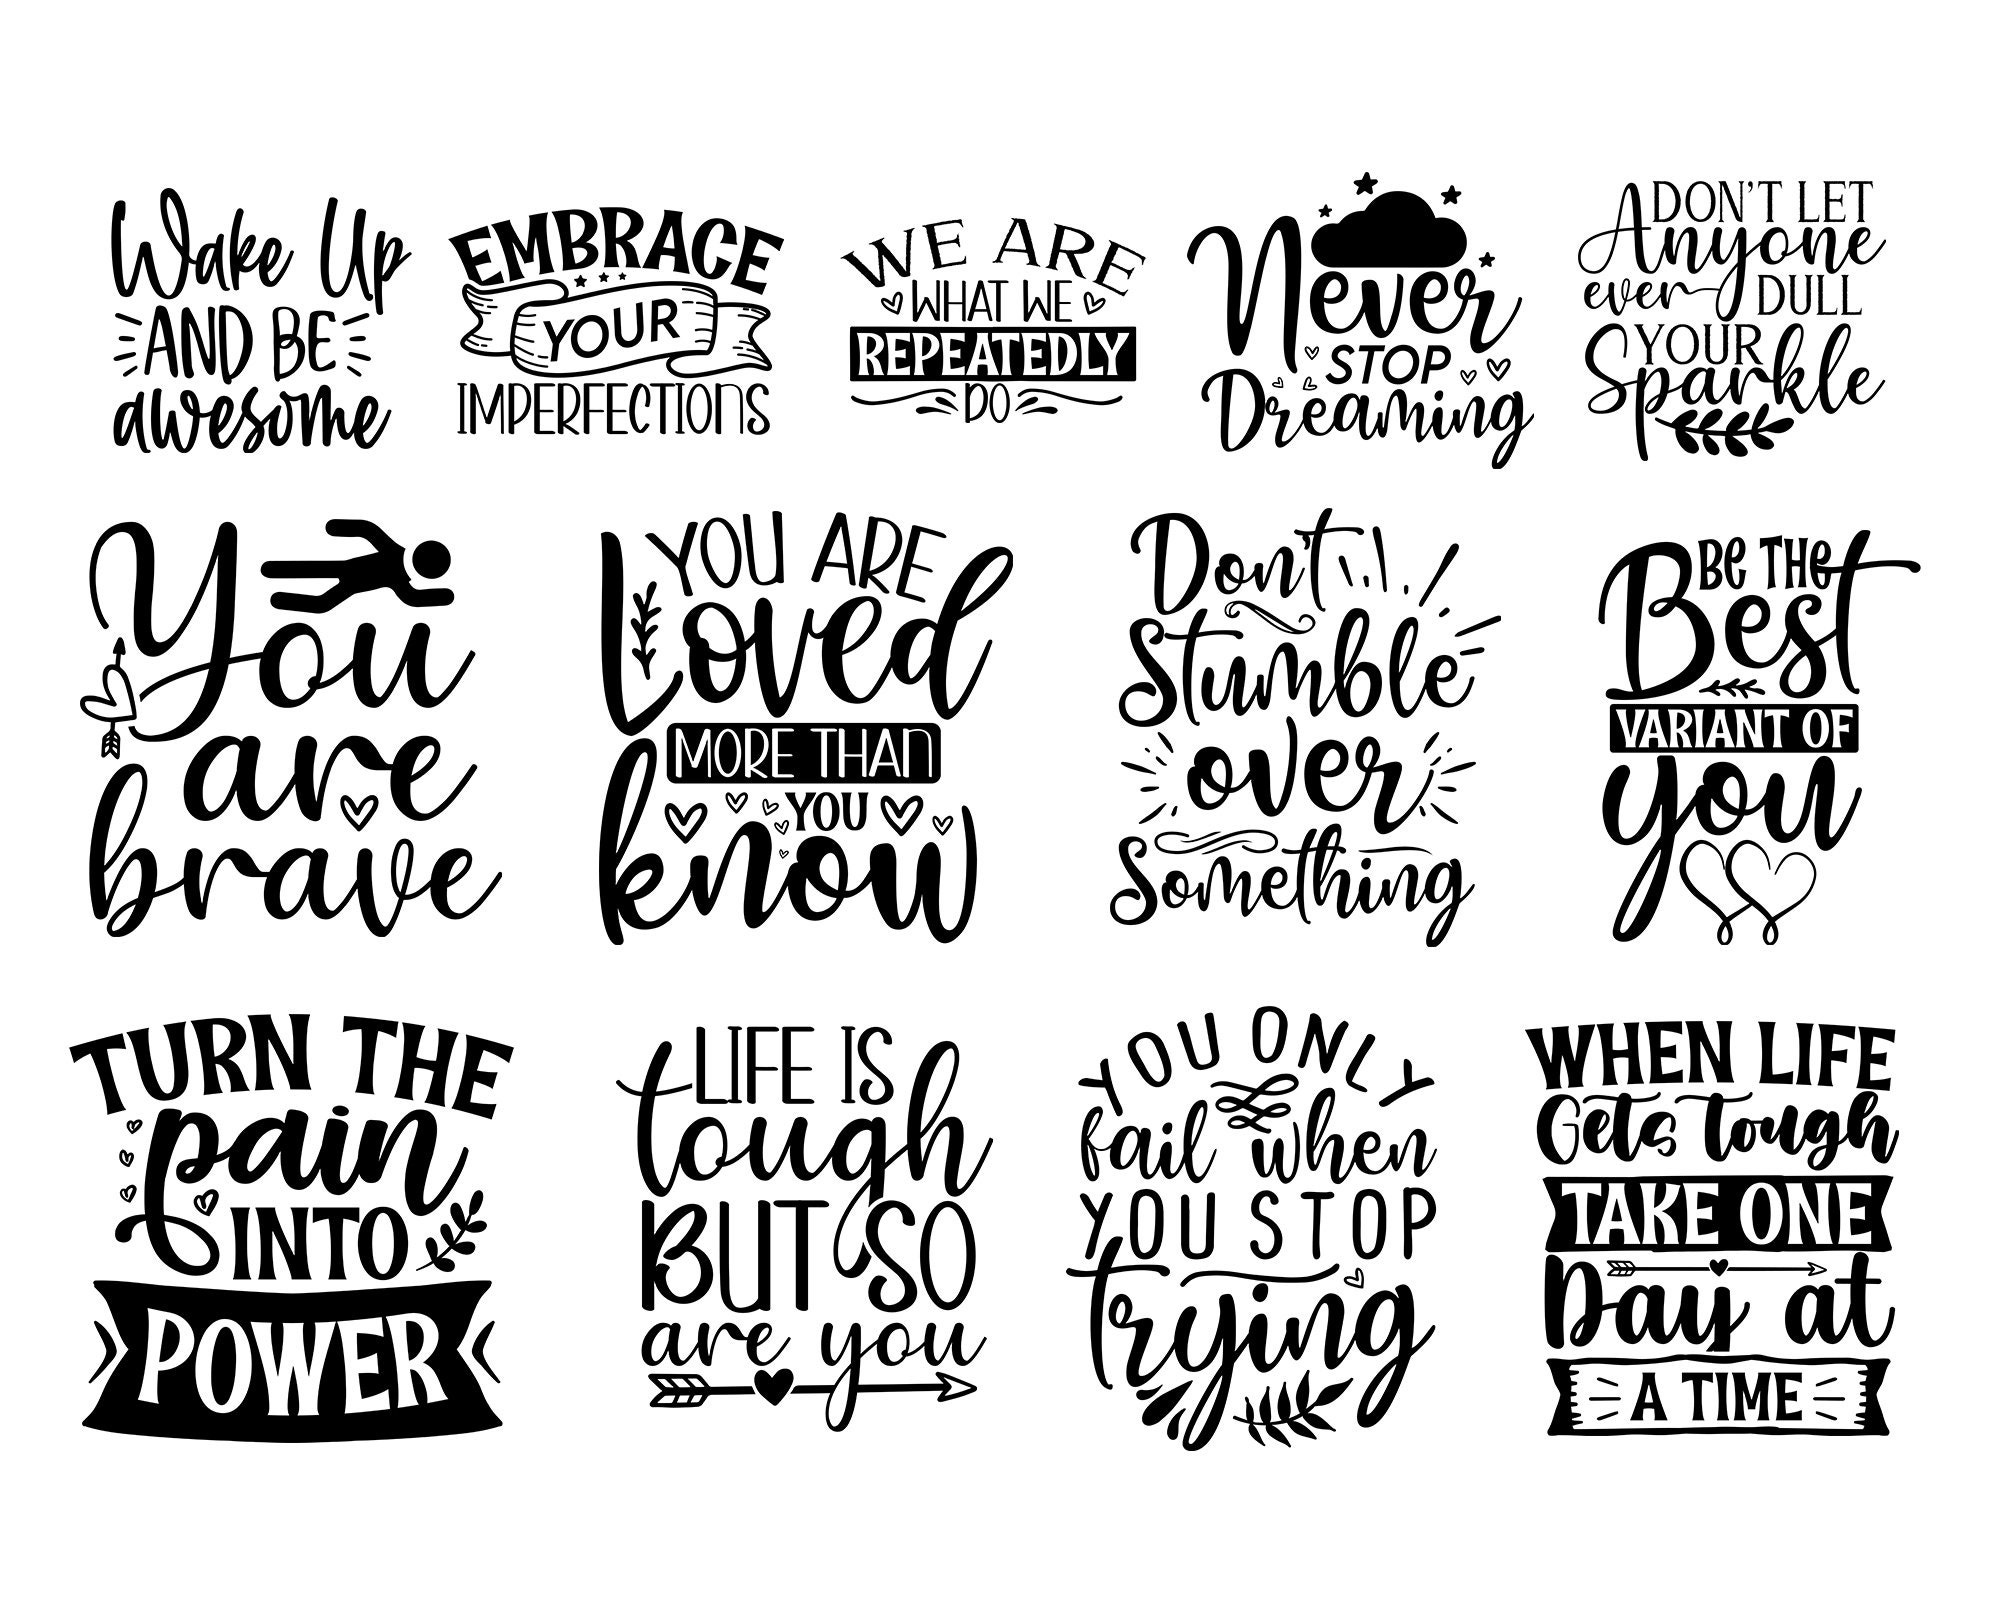 Wake Up
AND BE
awesome
EMBRACE
YOUR
IMPERFECTIONS
WE ARE
WHAT WE
REPEATEDLY
DO
Never
STOP
Dreaming
DON'T LET
Anyone
ever DULL
YOUR
Sparkle
You
are
brave
YOU ARE
Loved
MORE THAN
YOU
know
Don't
Stumble
over
Something
BE THE
Best
VARIANT OF
you
TURN THE
pain
INTO
POWER
LIFE IS
tough
BUT SO
are you
YOU ONLY
fail when
YOU STOP
trying
WHEN LIFE
Gets tough
TAKE ONE
Day at
A TIME